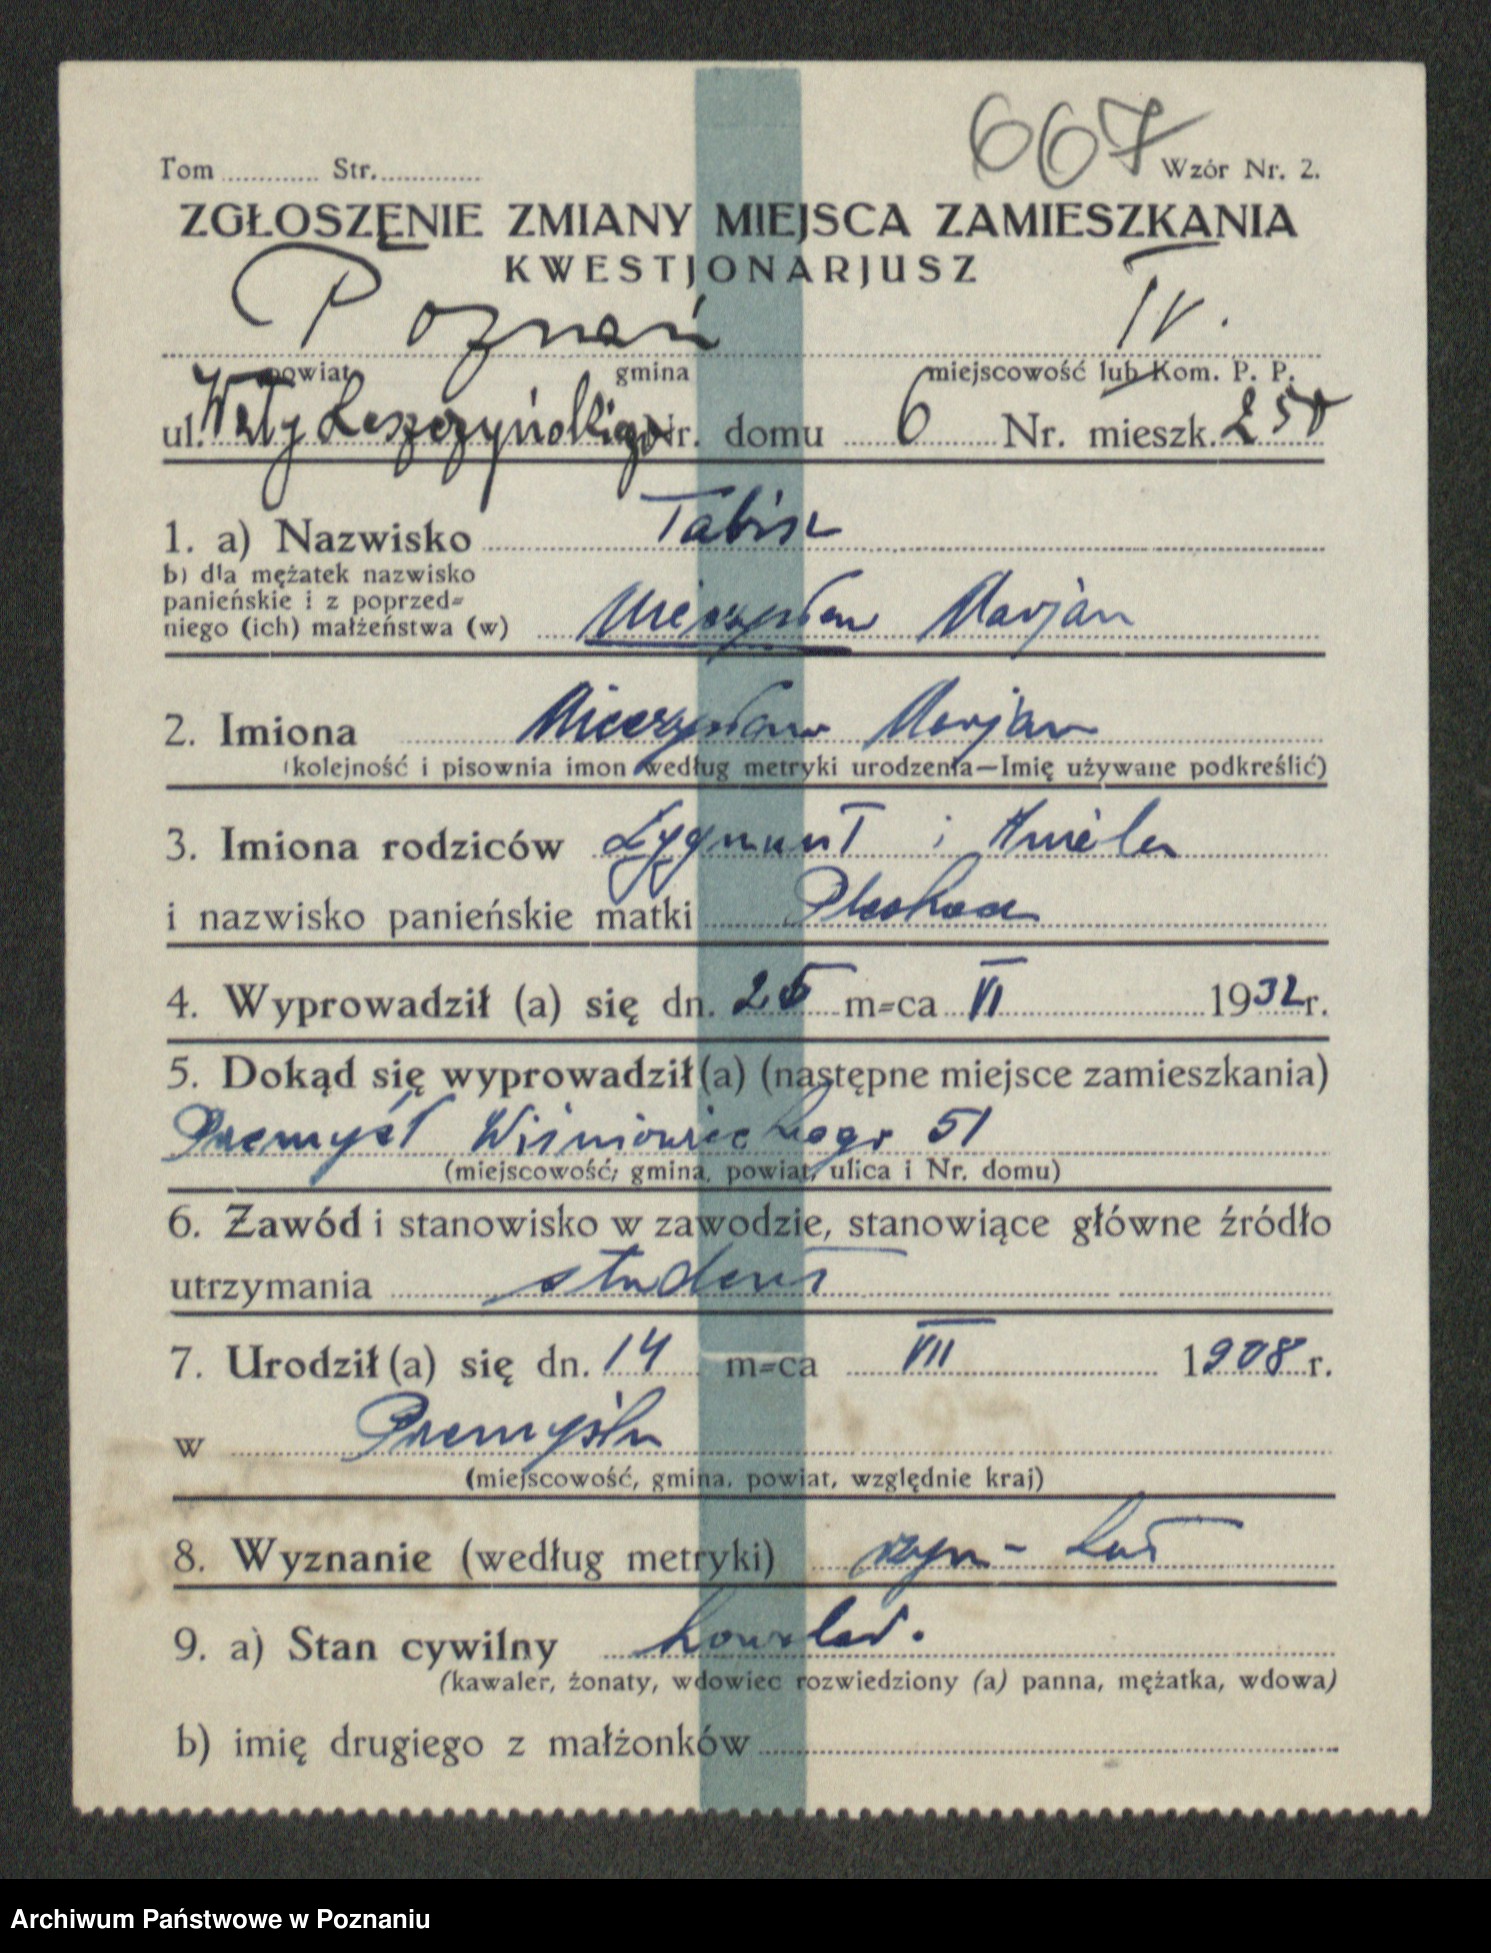 667
Tom ............ Str. ............ Wzór Nr. 2.
ZGŁOSZENIE ZMIANY MIEJSCA ZAMIESZKANIA
KWESTJONARJUSZ
Poznań IV.
powiat gmina miejscowość lub Kom. P. P.
ul. Wały Leszczyńskiego Nr. domu 6 Nr. mieszk. 250
1. a) Nazwisko Tabisz
b) dla mężatek nazwisko
panieńskie i z poprzed=
niego (ich) małżeństwa (w) Mieczysław Marjan
2. Imiona Mieczysław Marjan
(kolejność i pisownia imon według metryki urodzenia—Imię używane podkreślić)
3. Imiona rodziców Zygmunt i Amelia
i nazwisko panieńskie matki
4. Wyprowadził (a) się dn. 25 m=ca VI 1932 r.
5. Dokąd się wyprowadził (a) (następne miejsce zamieszkania)
Przemyśl Wiśniowieckiego 51
(miejscowość, gmina, powiat, ulica i Nr. domu)
6. Zawód i stanowisko w zawodzie, stanowiące główne źródło
utrzymania student
7. Urodził (a) się dn. 14 m=ca VII 1908 r.
w Przemyślu
(miejscowość, gmina, powiat, względnie kraj)
8. Wyznanie (według metryki) rzym - kat
9. a) Stan cywilny kawaler.
(kawaler, żonaty, wdowiec rozwiedziony (a) panna, mężatka, wdowa)
b) imię drugiego z małżonków
Archiwum Państwowe w Poznaniu